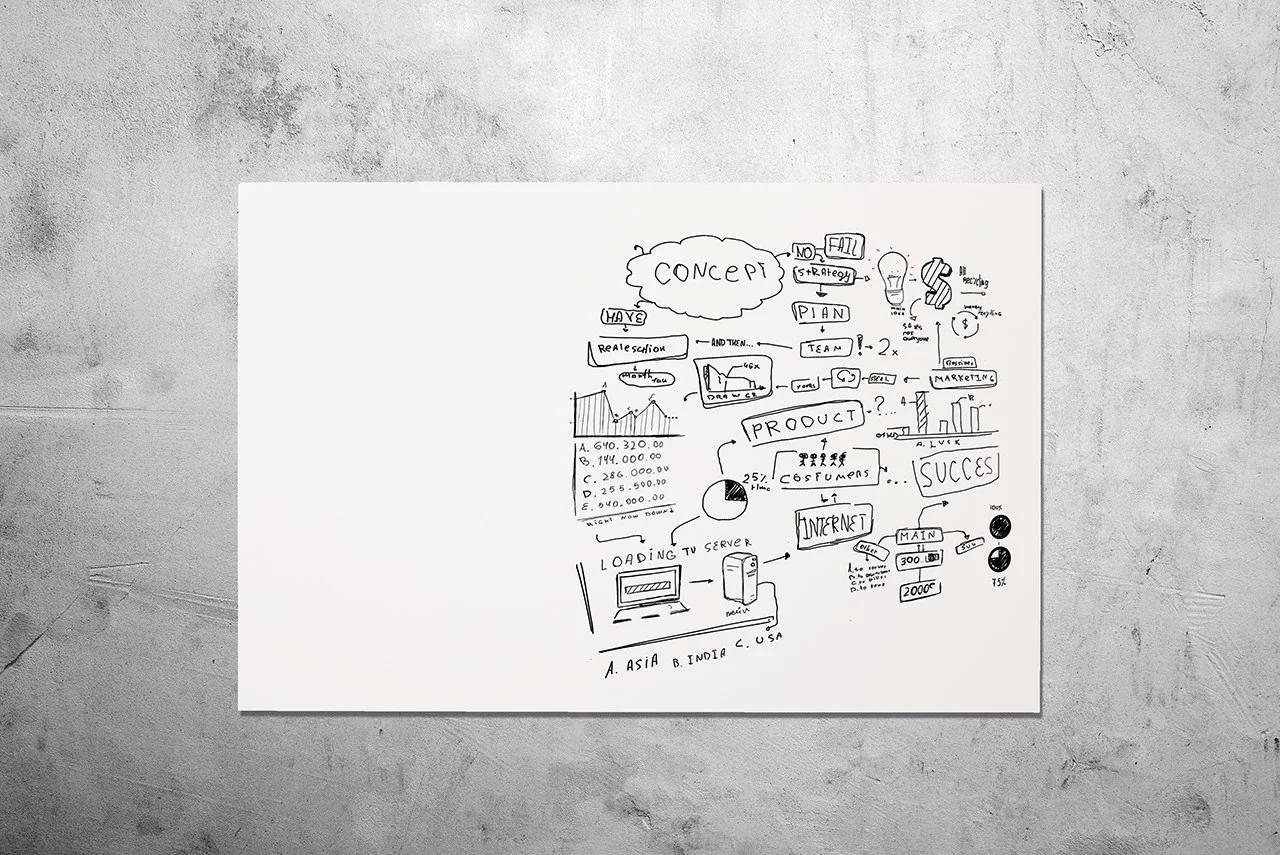 CONCEPT
NO
FAIL
STRATEGY
PLAN
TEAM
! 2x
HAVE
AND THEN...
MARKETING
PRODUCT
?...
A. 640.320.00
B. 144.000.00
C. 286.000.00
D. 255.500.00
E. 040.000.00
RIGHT NOW DOWN
25%
time
COSTUMERS
...
A. LUCK
SUCCES
INTERNET
LOADING TV SERVER
main
MAIN
other
300
2000
100%
75%
A. ASIA B. INDIA C. USA